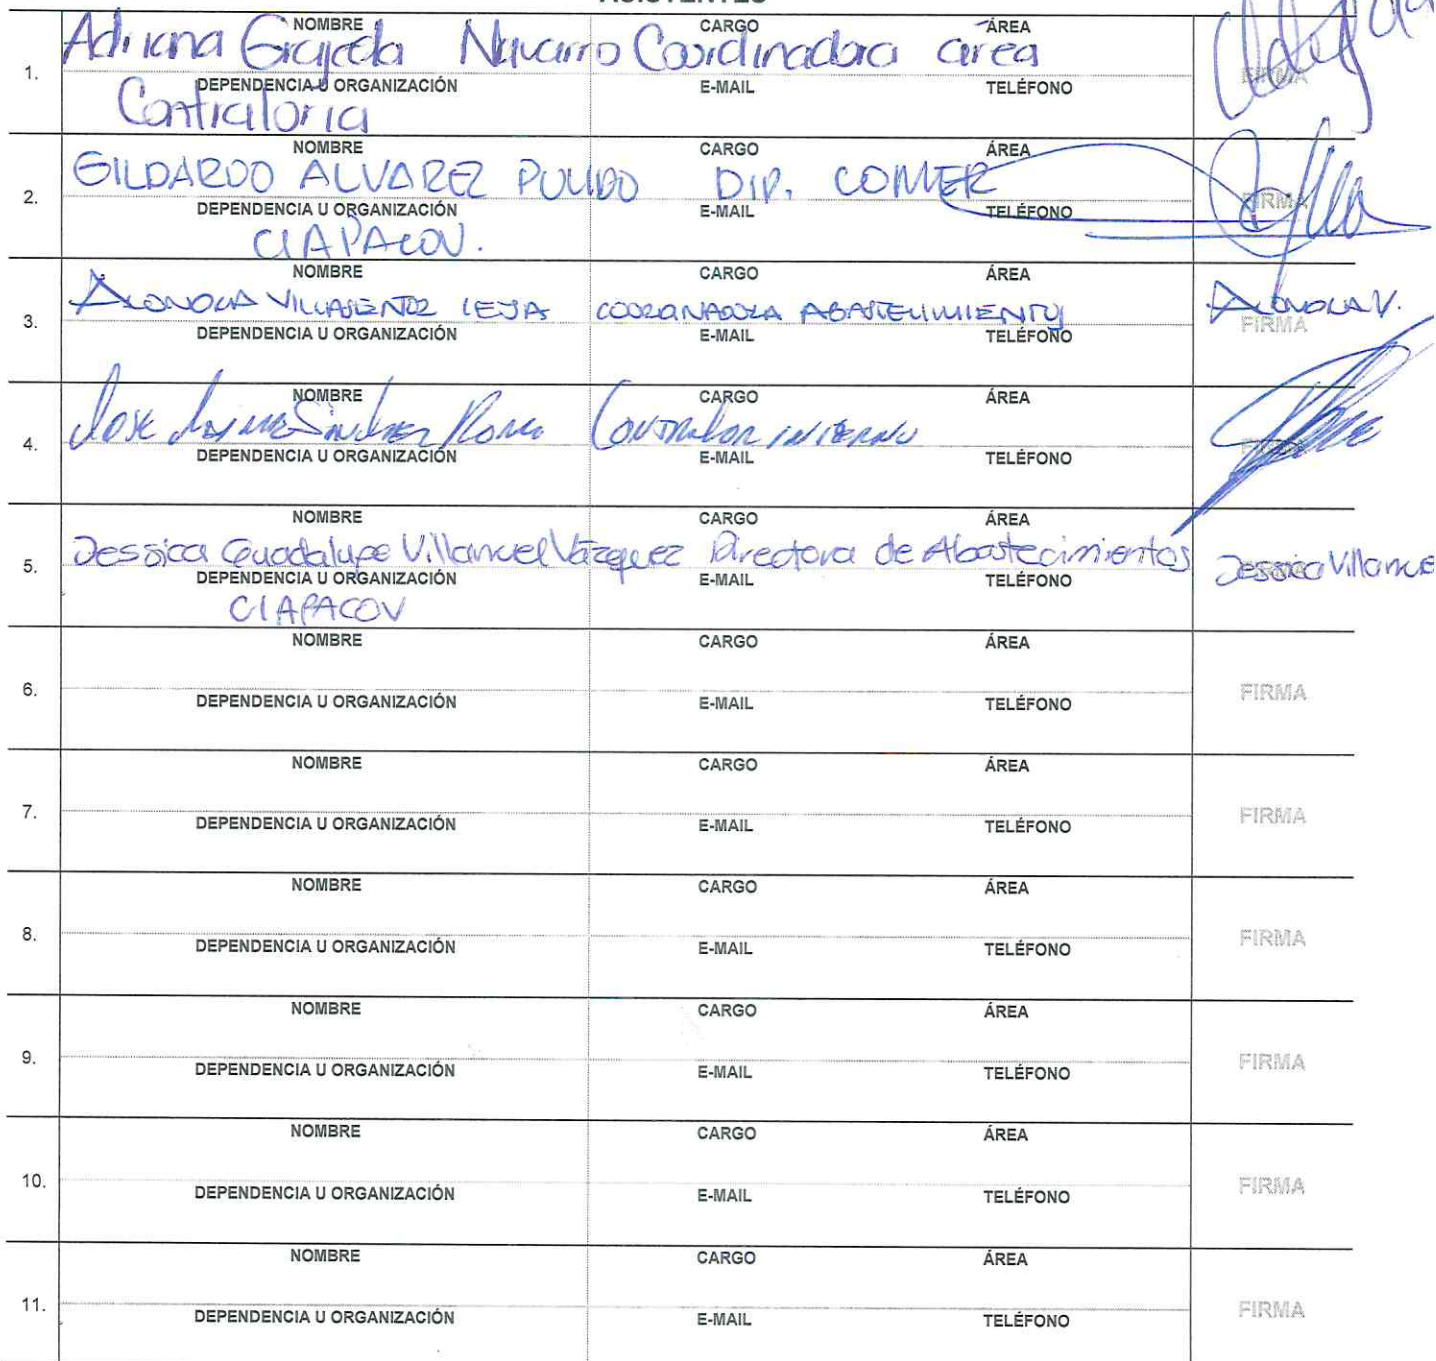 NOMBRE CARGO ÁREA
Adriana Grajeda Navarro Coordinadora area
1.
DEPENDENCIA U ORGANIZACIÓN E-MAIL TELÉFONO FIRMA
Contraloria
NOMBRE CARGO ÁREA
GILDARDO ALVAREZ PULIDO DIR. COMER
2.
DEPENDENCIA U ORGANIZACIÓN E-MAIL TELÉFONO FIRMA
CIAPACOV.
NOMBRE CARGO ÁREA
VILLASEÑOR LEJA COORDINADORA ABASTECIMIENTO
3.
DEPENDENCIA U ORGANIZACIÓN E-MAIL TELÉFONO FIRMA
NOMBRE CARGO ÁREA
Jose Sanchez CONTRALOR INTERNO
4.
DEPENDENCIA U ORGANIZACIÓN E-MAIL TELÉFONO FIRMA
NOMBRE CARGO ÁREA
Jessica Guadalupe Villanuel Vázquez Directora de Abastecimientos Jessica Villanue
5.
DEPENDENCIA U ORGANIZACIÓN E-MAIL TELÉFONO
CIAPACOV
NOMBRE CARGO ÁREA
6. FIRMA
DEPENDENCIA U ORGANIZACIÓN E-MAIL TELÉFONO
NOMBRE CARGO ÁREA
7. FIRMA
DEPENDENCIA U ORGANIZACIÓN E-MAIL TELÉFONO
NOMBRE CARGO ÁREA
8. FIRMA
DEPENDENCIA U ORGANIZACIÓN E-MAIL TELÉFONO
NOMBRE CARGO ÁREA
9. FIRMA
DEPENDENCIA U ORGANIZACIÓN E-MAIL TELÉFONO
NOMBRE CARGO ÁREA
10. FIRMA
DEPENDENCIA U ORGANIZACIÓN E-MAIL TELÉFONO
NOMBRE CARGO ÁREA
11. FIRMA
DEPENDENCIA U ORGANIZACIÓN E-MAIL TELÉFONO